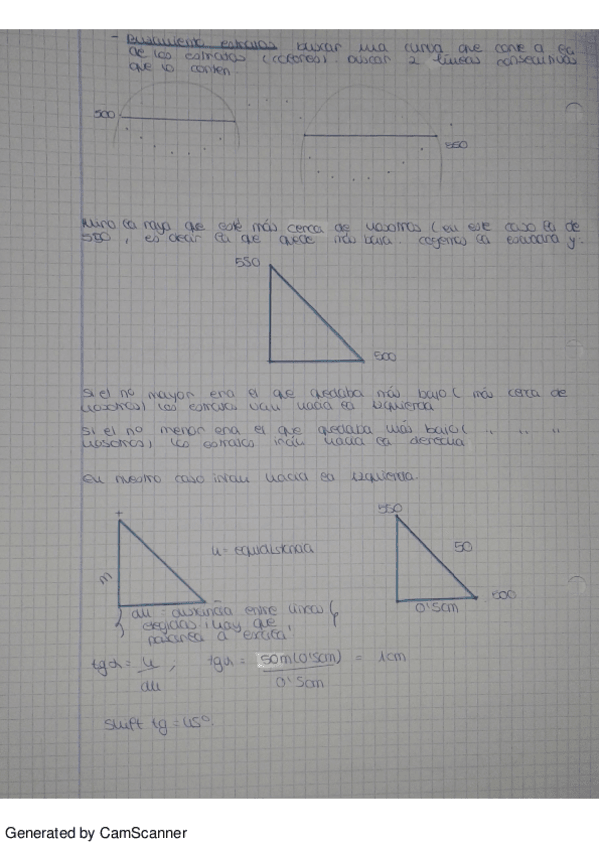 - Buzamiento estratos buscar una curva que corte a
de los estratos (colores). buscar 2 líneas consecutivas
que lo corten.
500
550
Miro la raya que esté más cerca de nosotros (en este caso la de
550, es decir la que quede más baja. cogemos la escuadra y.
550
500
Si el nº mayor era el que quedaba más bajo (más cerca de
nosotros) los estratos van hacia la izquierda
Si el nº menor era el que quedaba más bajo ( " " "
nosotros, los estratos irían hacia la derecha
En nuestro caso irían hacia la izquierda.
+
u = equidistancia
m
-
550
50
500
0'5cm
du = distancia entre líneas
elegidas, hay que
pasarla a escala.
tgα = u/du, tgα = 50m(0'5cm)/0'5cm = 1cm
shift tg = 45º.
Generated by CamScanner